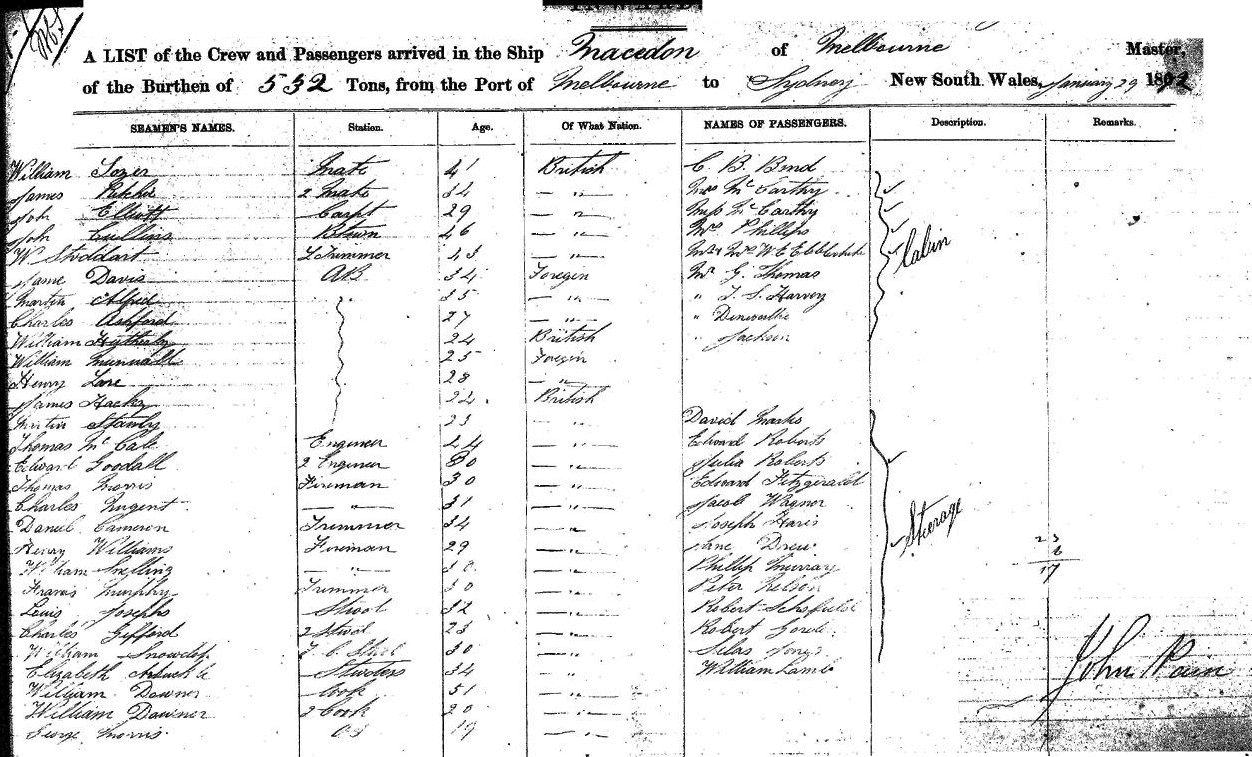 A LIST of the Crew and Passengers arrived in the Ship Macedon of Melbourne Master,
of the Burthen of 532 Tons, from the Port of Melbourne to Sydney New South Wales, January 29 1892
SEAMEN'S NAMES. Station. Age. Of What Nation. NAMES OF PASSENGERS. Description. Remarks.
William Mate 41 British C. B. Bond
James 2 Mate 34 — " — Mrs McCarthy
John Elliott Carpt 29 — " — Miss McCarthy
John Cullins 46 — " — Mrs Phillips
Wm Stoddart L Trimmer 43 — " — Mr & Mrs W E
Cabin
Jame Davis AB 34 Foregin Mr G. Thomas
Martin Alfred 35 — " — " T. S. Harvey
Charles Ashford 27 — " — "
William 24 British " Jackson
William 25 Foregin
Henry Lane 28 — " —
James 22 British
Martin 23 — " — David Marks
Thomas McCale Engineer 24 — " — Edward Roberts
Edward Goodall 2 Engineer 30 — " — Julia Roberts
Thomas Morris Fireman 30 — " — Edward Fitzgerald
Charles Nugent — " — 31 — " — Jacob Wagnor
Daniel Cameron Trimmer 34 — " — Joseph Haris
Sterage
Henry Williams Fireman 29 — " — Jane Drew
23
6
17
William Snelling — " — 30 — " — Phillip Murray
Francis Murphy Trimmer 30 — " — Peter Nelson
Louis Josephs Stwd 32 — " — Robert Schofield
Charles Gifford 2 Stwd 23 — " — Robert
William 30 — " — Silas Jones
Elizabeth 34 — " — William Lamb
William Downer Cook 51 — " —
John
William Downer 2 Cook 20 — " —
George Morris OS 19 — " —